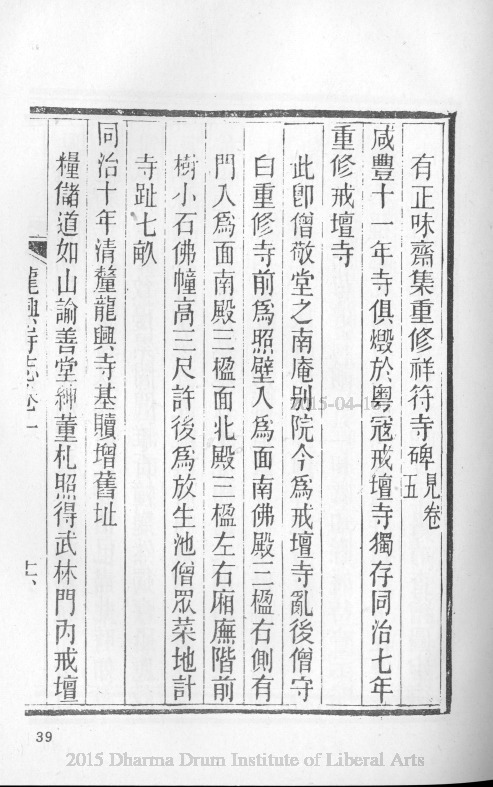 有正味齋集重修祥符寺碑見卷五
咸豐十一年寺俱燬於粵冦戒壇寺獨存同治七年
重修戒壇寺
此卽僧敬堂之南庵别院今爲戒壇寺亂後僧守
白重修寺前爲照壁入爲面南佛殿三楹右側有
門入爲面南殿三楹面北殿三楹左右廂廡階前
樹小石佛幢高三尺許後爲放生池僧眾菜地計
寺趾七畝
同治十年清釐龍興寺基贖增舊址
糧儲道如山諭善堂紳董札照得武林門內戒壇
龍興寺志卷一
39
2015 Dharma Drum Institute of Liberal Arts